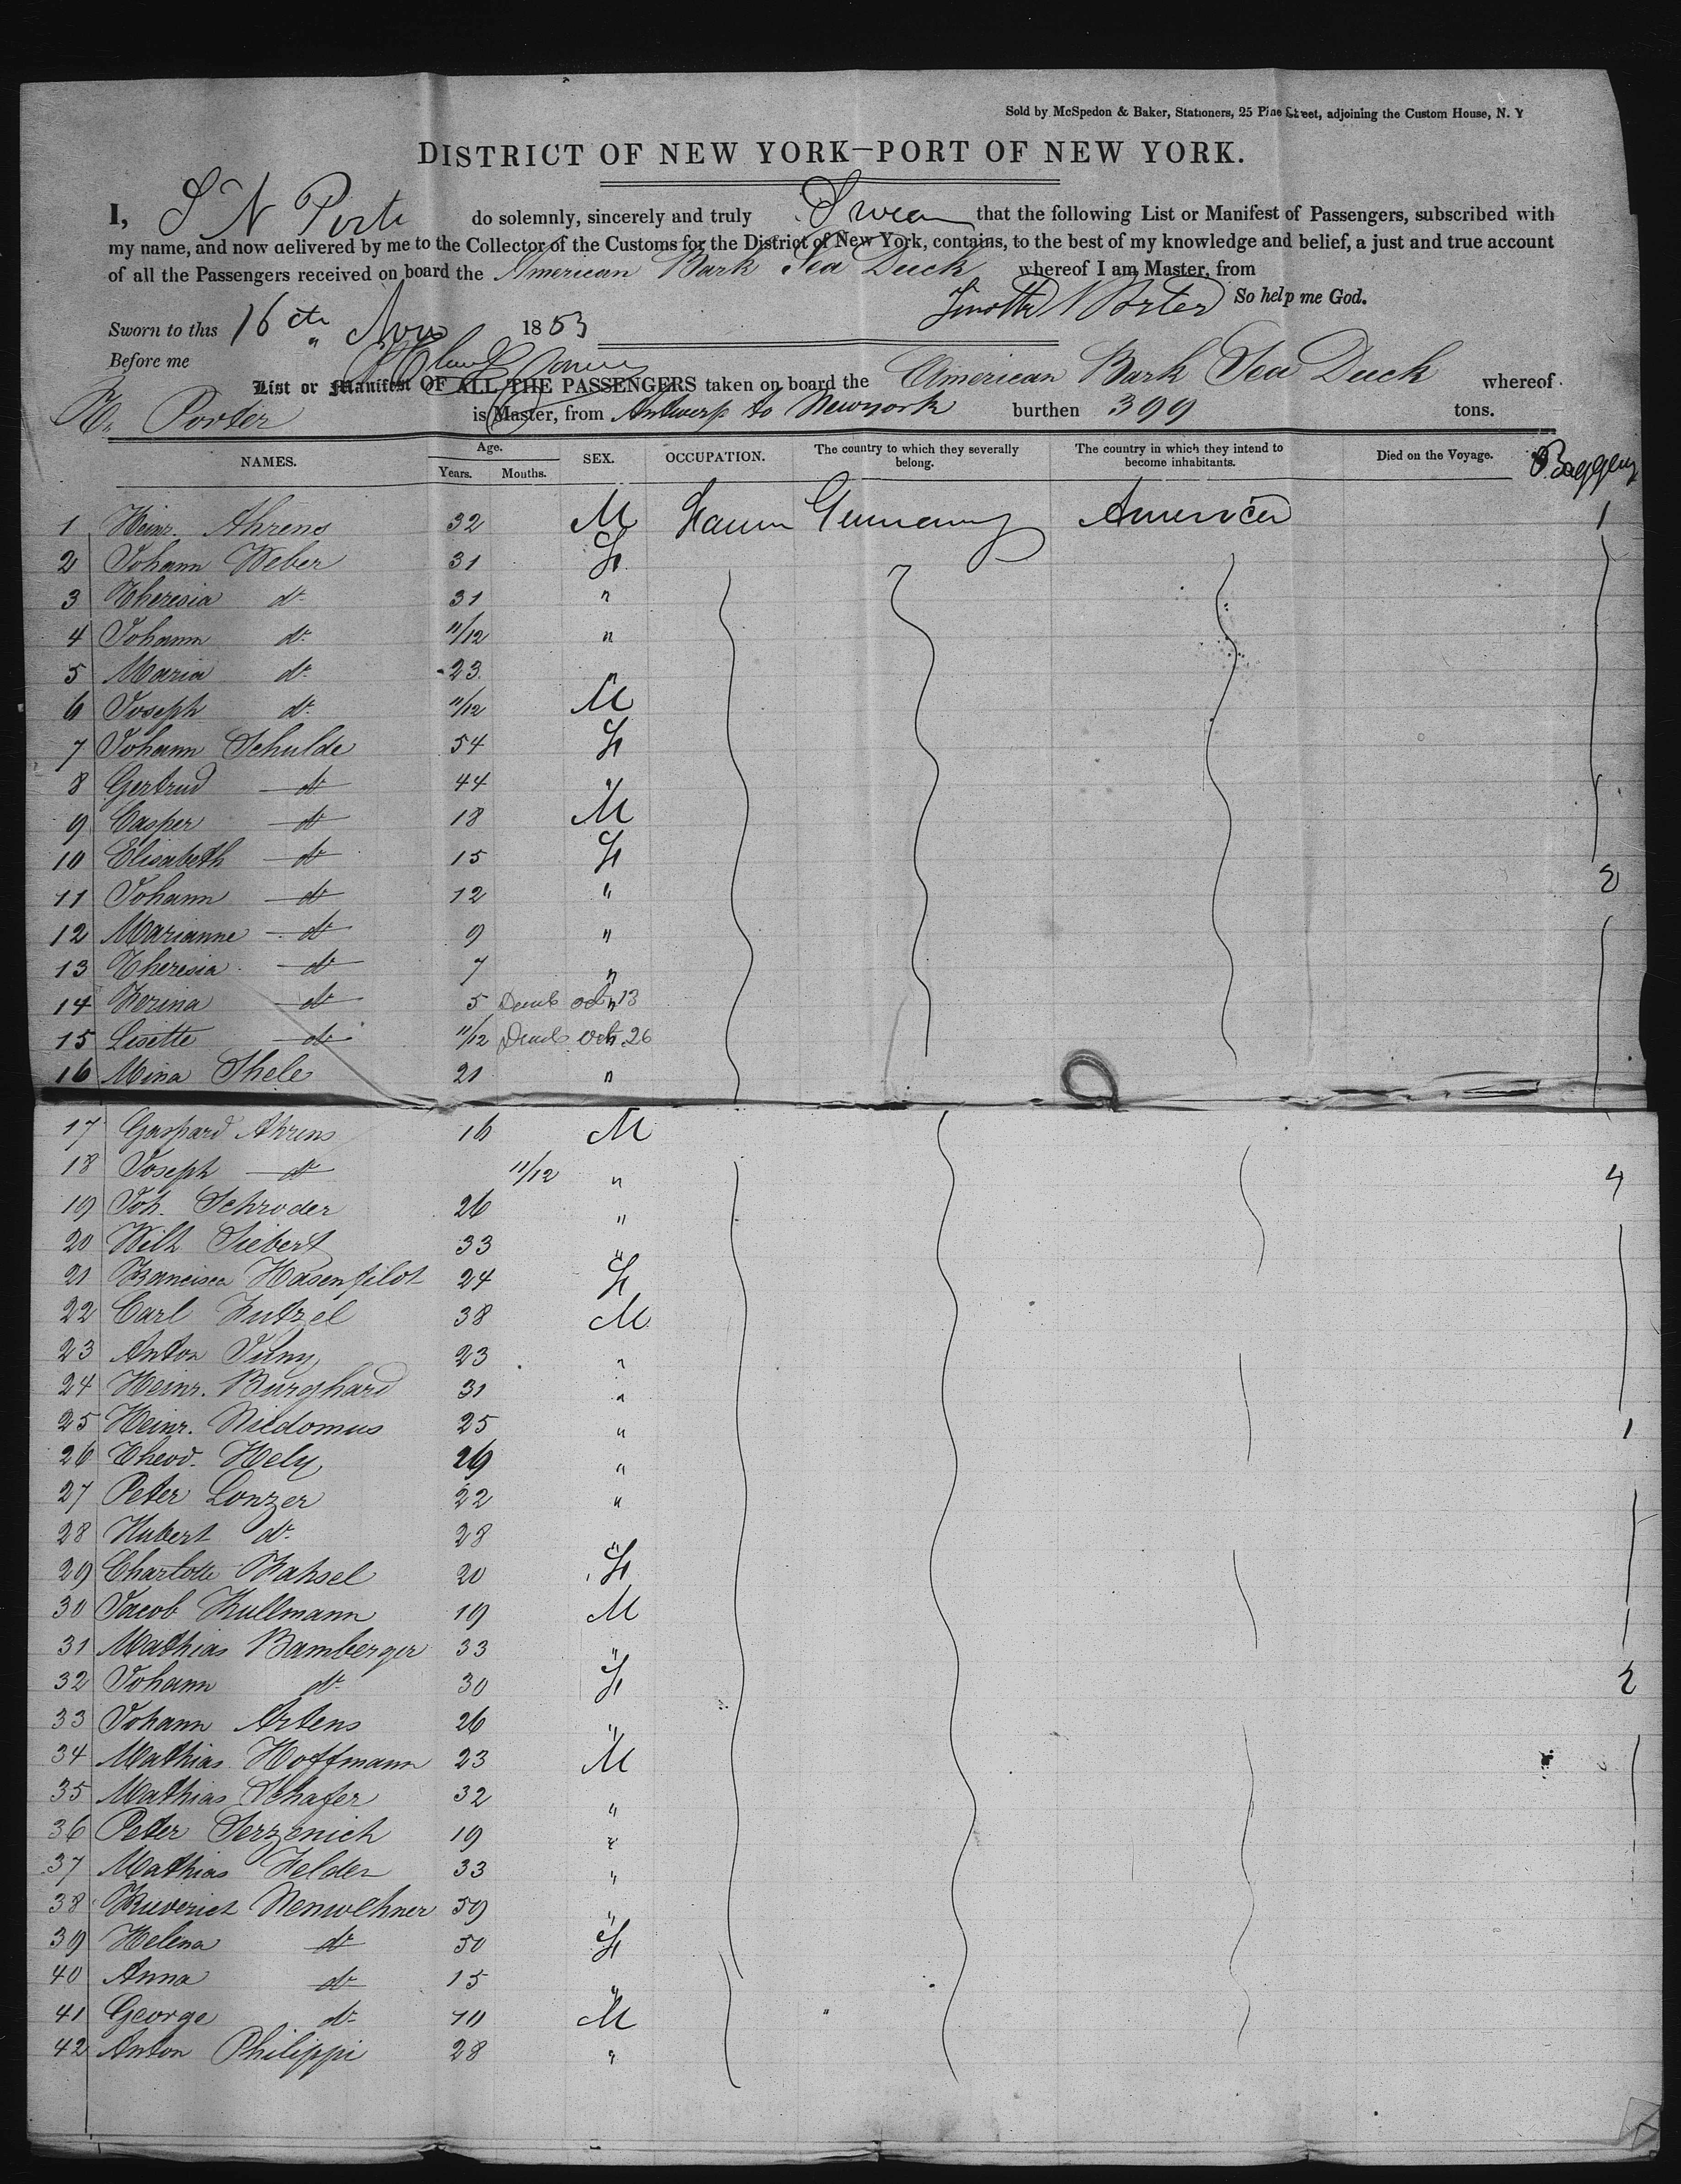 Sold by McSpedon & Baker, Stationers, 25 Pine Street, adjoining the Custom House, N. Y
DISTRICT OF NEW YORK—PORT OF NEW YORK.
I, S N Porte do solemnly, sincerely and truly Swear that the following List or Manifest of Passengers, subscribed with
my name, and now delivered by me to the Collector of the Customs for the District of New York, contains, to the best of my knowledge and belief, a just and true account
of all the Passengers received on board the American Bark Sea Duck whereof I am Master, from
Porter So help me God.
Sworn to this 16th Nov 1853
Before me
List or Manifest OF ALL THE PASSENGERS taken on board the American Bark Sea Duck whereof
Porter is Master, from Antwerp to Newyork burthen 399 tons.
NAMES. Age. Years. Months. SEX. OCCUPATION. The country to which they severally belong. The country in which they intend to become inhabitants. Died on the Voyage. Baggage
1 Heinr. Ahrens 32 M Farmer Germany America 1
2 Johann Weber 31 F
3 Theresia do 31 "
4 Johann do 11/12 "
5 Maria do 23 "
6 Joseph do 11/12 M
7 Johann Schulde 54 F
8 Gertrud do 44 "
9 Casper do 18 M
10 Elisabeth do 15 F
11 Johann do 12 " 2
12 Marianne do 9 "
13 Theresia do 7 "
14 do 5 Died oct 13 "
15 Lisette do 11/12 Died Oct 26
16 Mina Thele 21 "
17 Gaspard Ahrens 16 M
18 Joseph do 11/12 " 4
19 Joh. Schroder 26 "
20 Wilh Siebert 33 "
21 Francisca Hasenfilot 24 F
22 Carl 38 M
23 Anton 23 "
24 Heinr. Burghard 31 "
25 Heinr. Niedomus 25 " 1
26 Theod. Hely 29 "
27 Peter Lonzer 22 "
28 Hubert do 28 "
29 Charlotte 20 F
30 Jacob Kullmann 19 M
31 Mathias Bamberger 33 "
32 Johann do 30 F 2
33 Johann Artens 26 "
34 Mathias Hoffmann 23 M
35 Mathias Schafer 32 "
36 Peter Serzenich 19 "
37 Mathias Felder 33 "
38 Nenwehner 59 "
39 Helena do 50 F
40 Anna do 15 "
41 George do 10 M
42 Anton Philippi 28 "